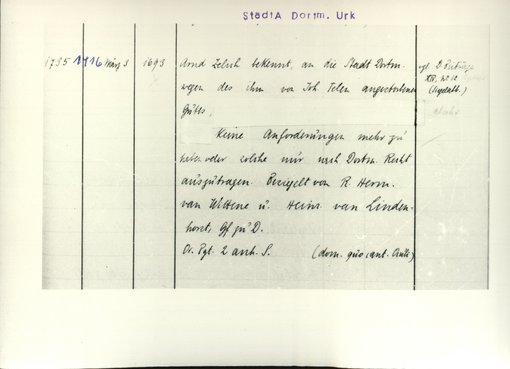 StadtA Dortm. Urk
1735 1416 März 3 1693 Arnd Zelich bekennt, an die Stadt Dortm. vgl. D. Beiträge
wegen des ihm von Joh. Telen angestorbenen XIV, No 12
Gutts, (Agelntl.)
Keine Anforderungen mehr zu
haben oder solche nur nach Dortm. Recht
auszutragen. Besiegelt von R. Herm.
van Wittene u. Heinr van Linden-
horst, Gf zu D.
Or. Pgt. 2 anh. S. (dom. quo cant. Oculi)